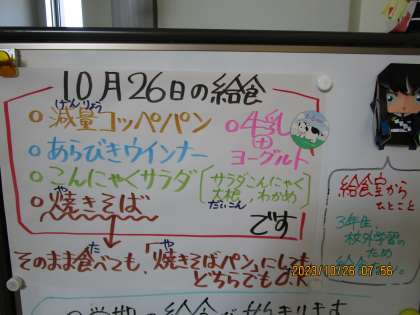 10月26日の給食
げんりょう
○減量コッペパン
○牛乳
○あらびきウインナー
ヨーグルト
○こんにゃくサラダ
サラダこんにゃく
大根 わかめ
だいこん
や
○焼きそば
です
た や
そのまま食べても、「焼きそばパン」にしても
どちらでもO.K
給食室から
ひとこと
3年生
校外学習の
ため
2023/10/26 07:56